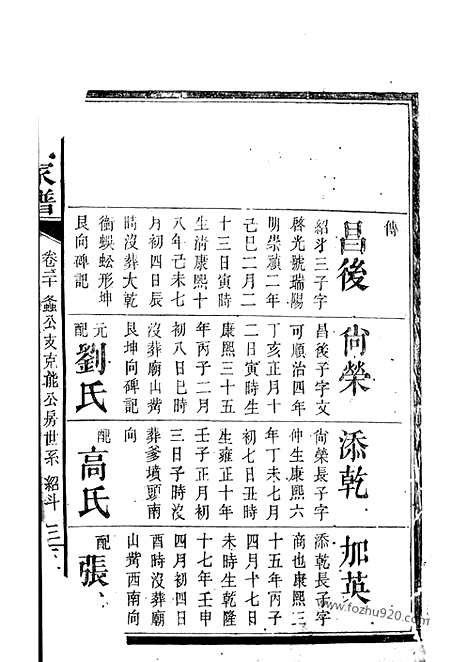 傳
昌後
紹斗三子字
啓光號瑞陽
明崇禎二年
己巳二月二
十三日寅時
生清康熙十
八年己未七
月初四日辰
時沒葬大乾
衝蜈蚣形坤
艮向碑記
尙榮
昌後子字文
可順治四年
丁亥正月十
二日寅時生
康熙三十五
年丙子二月
初八日巳時
沒葬廟山灣
艮坤向碑記
元配
劉氏
添乾
尙榮長子字
仲生康熙六
年丁未七月
初七日丑時
生雍正十年
壬子正月初
三日子時沒
葬爹墳頭南
向
配
高氏
加英
添乾長子字
商也康熙三
十五年丙子
四月十七日
未時生乾隆
十七年壬申
四月初四日
酉時沒葬廟
山灣西南向
配
張
家譜
卷三十 螽公支克龍公房世系 紹斗
www.fozhu920.com